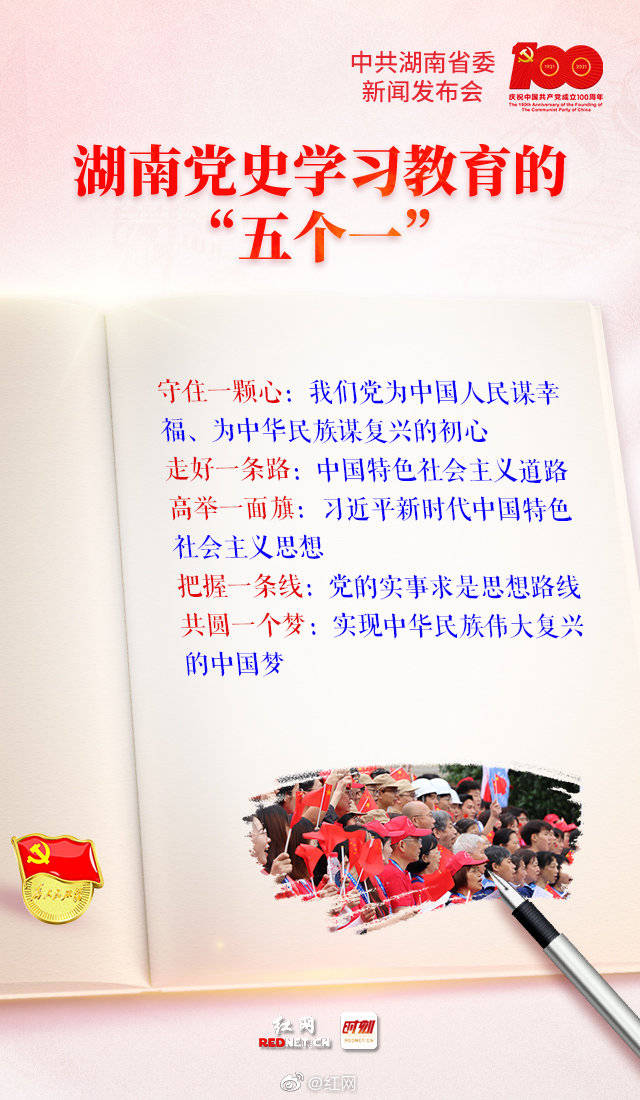 中共湖南省委
新闻发布会
100
1921
2021
庆祝中国共产党成立100周年
The 100th Anniversary of the Founding of
The Communist Party of China
湖南党史学习教育的
“五个一”
守住一颗心：我们党为中国人民谋幸
福、为中华民族谋复兴的初心
走好一条路：中国特色社会主义道路
高举一面旗：习近平新时代中国特色
社会主义思想
把握一条线：党的实事求是思想路线
共圆一个梦：实现中华民族伟大复兴
的中国梦
为人民服务
红网
REDNET.CN
时刻
REDNET.CN
@红网